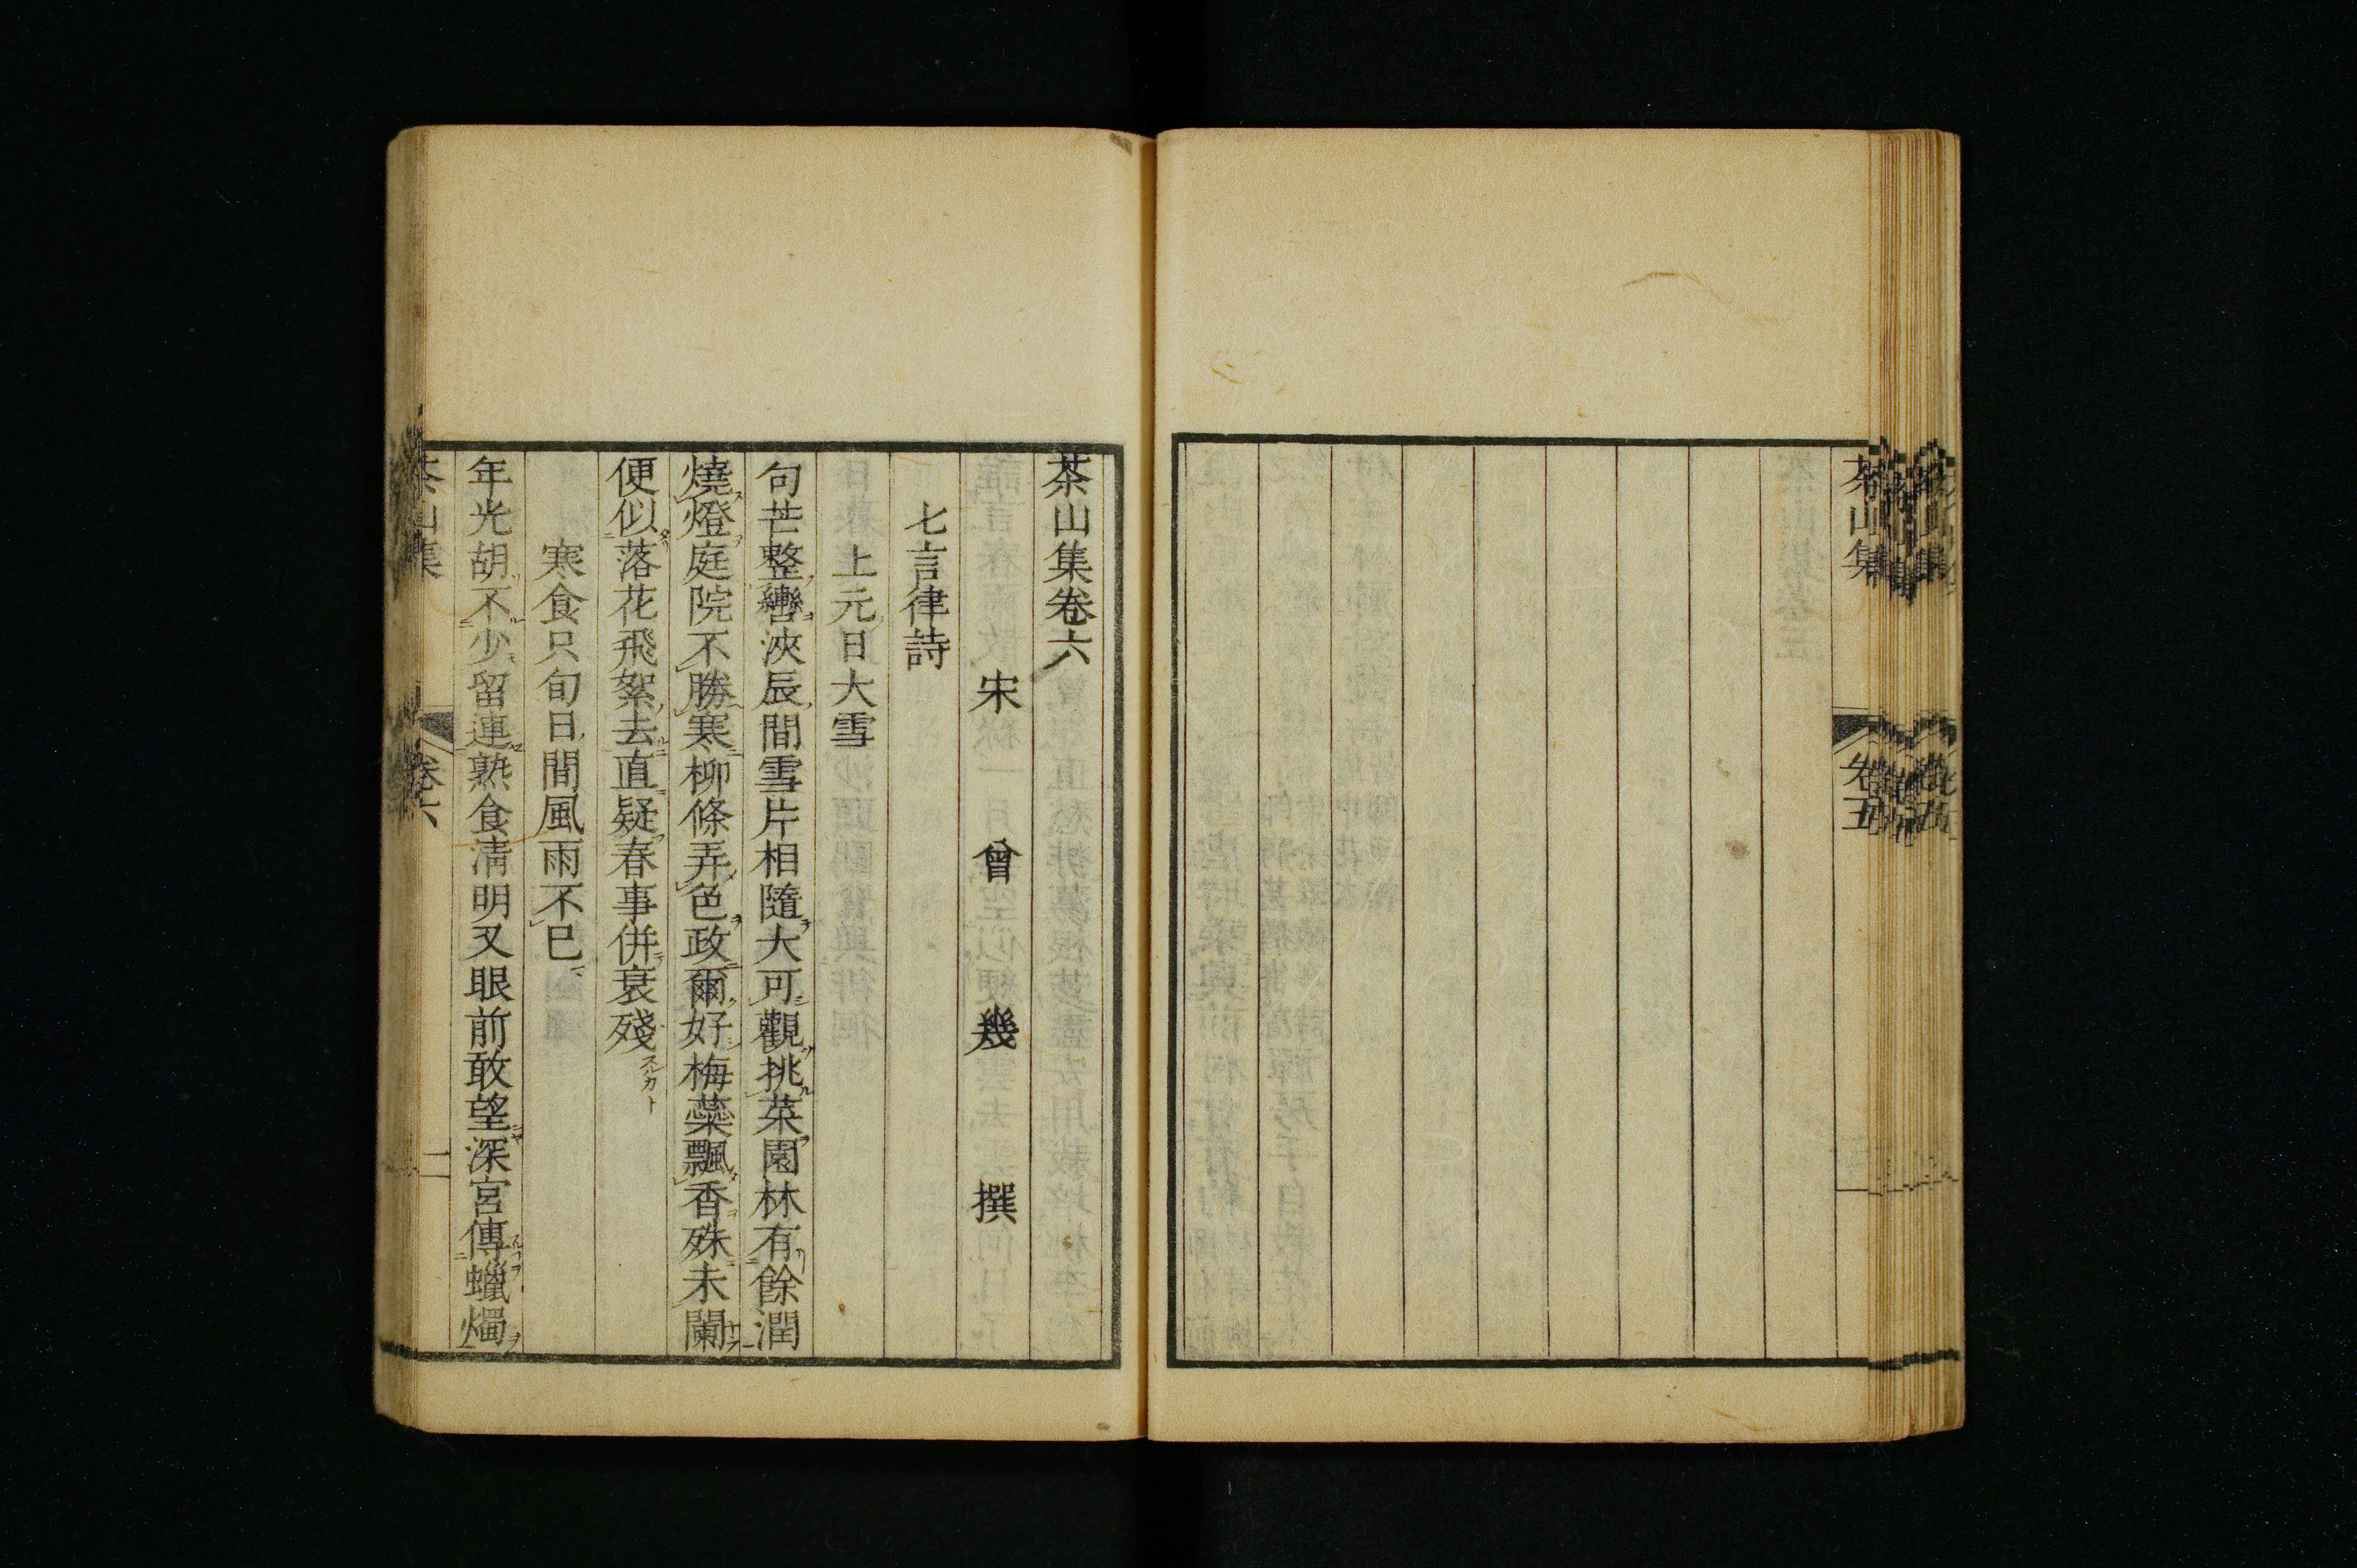 茶山集
卷五
茶山集卷六
宋 曾 幾 撰
七言律詩
上元日大雪
句芒整轡浹辰間雪片相隨大可觀挑菜園林有餘潤
燒燈庭院不勝寒柳條弄色政爾好梅蘂飄香殊未闌
便似落花飛絮去直疑春事併衰殘
寒食只旬日間風雨不已
年光胡不少留連熟食清明又眼前敢望深宮傳蠟燭
茶山集
卷六
一